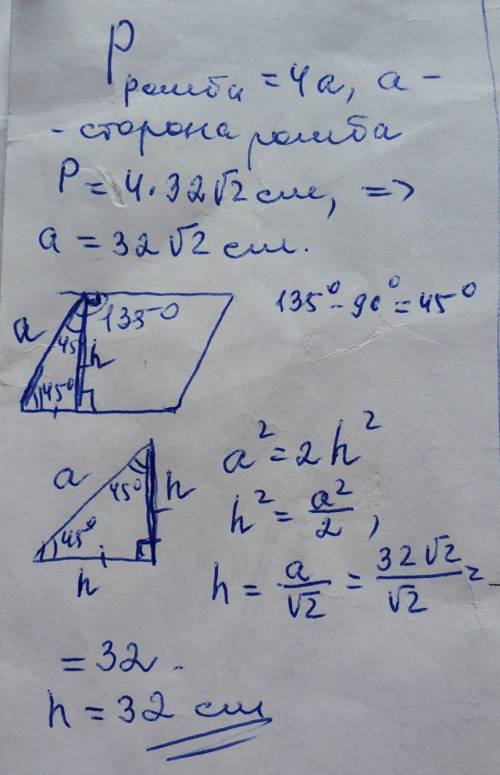 P ромба = 4a, a -
- сторона ромба
P = 4·32√2 см, =>
a = 32√2 см.
a 135° 45 h 45°
135° - 90° = 45°
a 45° h 45° h
a² = 2h²
h² = a²/2,
h = a/√2 = 32√2/√2 =
= 32.
h = 32 см